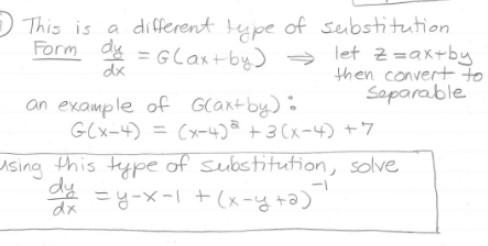 ) This is a different type of substitution
Form dy/dx = G(ax+by) ⇒ let z=ax+by
then convert to
separable
an example of G(ax+by):
G(x-4) = (x-4)² + 3(x-4) + 7
using this type of substitution, solve
dy/dx = y-x-1 + (x-y+2)⁻¹